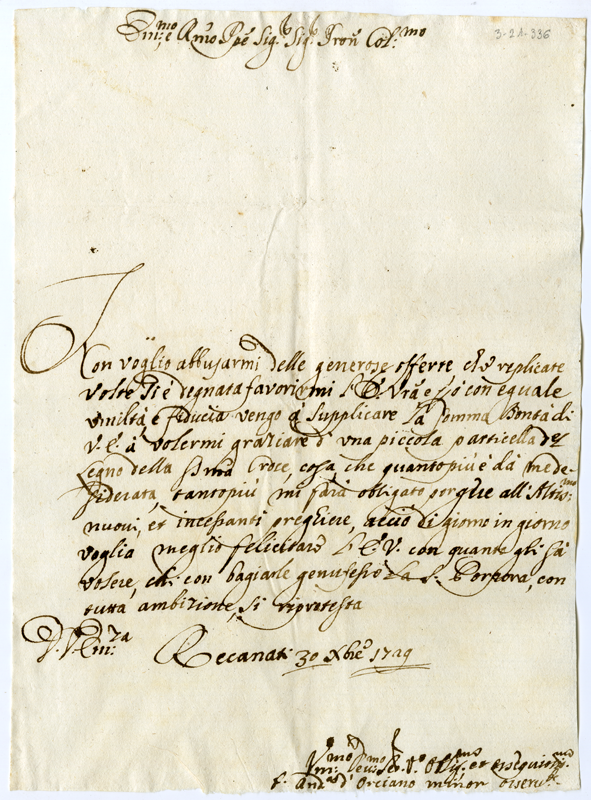 Em.mo e R.mo Ppe Sig.r Sig.r Pron Col.mo
3-21-336
Non voglio abbusarmi delle generose offerte che replicate
volte si è degnata favorirmi l'E. Vra e so con eguale
umiltà e fiducia vengo à supplicare la somma bontà di
V. E. à volermi graziare d'una piccola particella del
legno della SSma Croce, cosa che quanto più è da me de=
siderata, tanto più mi sarà obligato porgere all'Altis:mo
nuovi, et incessanti preghiere, acciò di giorno in giorno
voglia meglio felicitare l'E. V. con quante gli sà
volere, chi con bagiarle genuflesso la S. Porpora, con
tutta ambizione, si riprotesta
D. V. Em:za
Recanati 30 Xbre 1729
V.mo Dev.mo Ser.re Oblig.mo et ossequiosis.mo
f. And.a d'Orciano minor osserv.